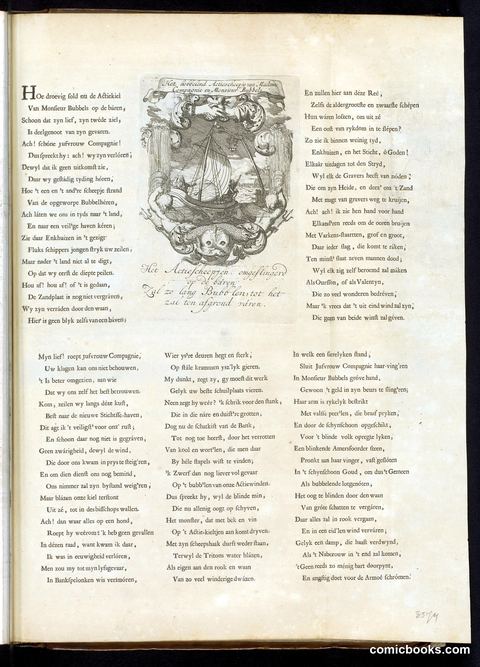 Het noodlend Actiescheepje van Madam
Compagnie en Monsieur Bubbels
HOe droevig sold nu de Actiekiel
Van Monsieur Bubbels op de báren,
Schoon dat zyn lief, zyn twéde ziel,
Is deelgenoot van zyn gevaren.
Ach! schóne jufvrouw Compagnie!
Dus spreekt hy: ach! wy zyn verlóren;
Dewyl dat ik geen uitkomst zie,
Daar wy gestádig tyding hóren,
Hoe 't een en 't andre scheepje strand
Van de opgeworpe Bubbelhéren,
Ach láten we ons in tyds naar 't land,
En naar een veil'ge haven kéren;
Zie daar Enkhuizen in 't gezigt
Fluks schippers jongen stryk uw zeilen;
Maar nader 't land niet al te digt,
Op dat wy eerst de diepte peilen.
Hou af! hou af! of 't is gedaan,
De Zandplaat is nog niet vergráven,
Wy zyn verráden door den waan,
Hier is geen blyk zelfs van een háven;
Het Actiescheepjen, omgeslingerd
op de báren
Zal zo lang Bubb'len, tot het
zal ten afgrond váren.
En zullen hier aan déze Reé,
Zelfs de aldergrootste en zwaarste schépen
Hun wáren lossen, om uit zé
Een oost van rykdom in te slépen?
Zo zie ik binnen weinig tyd,
Enkhuizen, en het Sticht, ô Goden!
Elkaâr uitdagen tot den Stryd,
Wyl elk de Gravers heeft van noden;
Die om zyn Heide, en dees' om 't Zand
Met magt van gravers weg te kruijen,
Ach! ach! ik zie hen hand voor hand
Elkand'ren reeds om de ooren bruijen
Met Varkens-staarten, grof en groot,
Daar ieder slag, die komt te ráken;
Ten minst' staat zeven mannen dood;
Wyl elk zig zelf beroemd zal máken
Als Ourson, of als Valentyn,
Die zo veel wonderen bedréven;
Maar 'k vrees dat 't uit eind wind zal zyn,
Die gean van beide winst zal géven.
Myn lief! roept jufvrouw Compagnie,
Uw klagen kan ons niet behouwen,
't Is beter omgezien, aan wie
Dat wy ons zelf het best betrouwen.
Kom, zeilen wy langs déze kust,
Best naar de nieuwe Stichtsse-haven,
Dit agt ik 't veiligst' voor ons' rust,
En schoon daar nog niet is gegráven,
Geen zwárigheid, dewyl de wind,
Die door ons kwam in prys te steig'ren,
En om dien dienst ons nog bemind,
Ons nimmer zal zyn bystand weig'ren,
Maar blázen onze kiel terstont
Uit zé, tot in des bisschops wallen.
Ach! dan waar alles op een hond,
Roept hy weêrom: 'k heb geen gevallen
In dézen raad, want kwam ik daar,
Ik was in eeuwigheid verlóren,
Men zou my tot myn lyfsgevaar,
In Bankspelonken wis versmóren,
Wier yz're deuren hegt en sterk,
Op stále krammen yss'lyk gieren.
My dunkt, zegt zy, gy moest dit werk
Gelyk uw beste schuilplaats vieren.
Neen zegt hy weêr? 'k schrik voor den stank,
Die in die náre en duist're grotten,
Dog nu de schuckist van de Bank,
Tot nog toe heerst, door het verrotten
Van kool en wort'len, die men daar
By héle stapels wist te vinden;
'k Zwerf dan nog liever vol gevaar
Op 't bubb'len van onze Actiewinden.
Dus spreekt hy, wyl de blinde min,
Die nu allenig oogt op schyven,
Het monster, dat met bek en vin
Op 't Actie-kieltjen aan komt dryven.
Met zyn scheepshaak durft weder staan,
Terwyl de Tritons water blázen,
Als eigen aan den rook en waan
Van zo veel winderige dwázen.
In welk een sierelyken stand,
Sluit Jufvrouw Compagnie haar ving'ren
In Monsieur Bubbels gróve hand,
Gewoon 't geld in zyn beurs te sling'ren;
Haar arm is rykelyk bestrikt
Met valsse peer'len, die braaf pryken,
En door de schynschoon opgeschikt,
Voor 't blinde volk opregte lyken,
Een blinkende Amersfoorder steen,
Pronkt aan haar vinger, vast geslóten
In 't schynschoon Goud, om dus 't Gemeen
Als bubbelende lotgenóten,
Het oog te blinden door den waan
Van gróte schatten te vergáren,
Daar alles zal in rook vergaan,
En in een eid'len wind verváren,
Gelyk een damp, die haast verdwynd,
Als 't Naberouw in 't end zal komen,
't Geen reeds zo ménig hart doorpynt,
En angstig doet voor de Armoê schrómen.
comicbooks.com